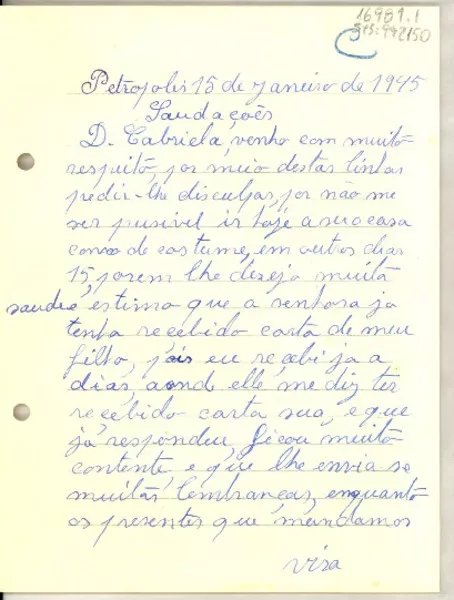 16989.1
sys: 992150
Petropolis 15 de Janeiro de 1945
Saudações
D. Gabriela, venho com muito
respuito, por meio destas linhas
pedir-lhe disculpas, por não me
ser pusivel ir hoje a sua casa
como de costume, em outros dias
15, porem lhe desejo muita
saude e estimo que a senhora ja
tenha recebido carta de meu
filho, pois eu recebi ja a
dias, aonde elle me diz ter
recebido carta sua, e que
já respondeu, ficou muito
contente, e que lhe envia-se
muitas lembranças, enquanto
os presentes que mandamos
vira